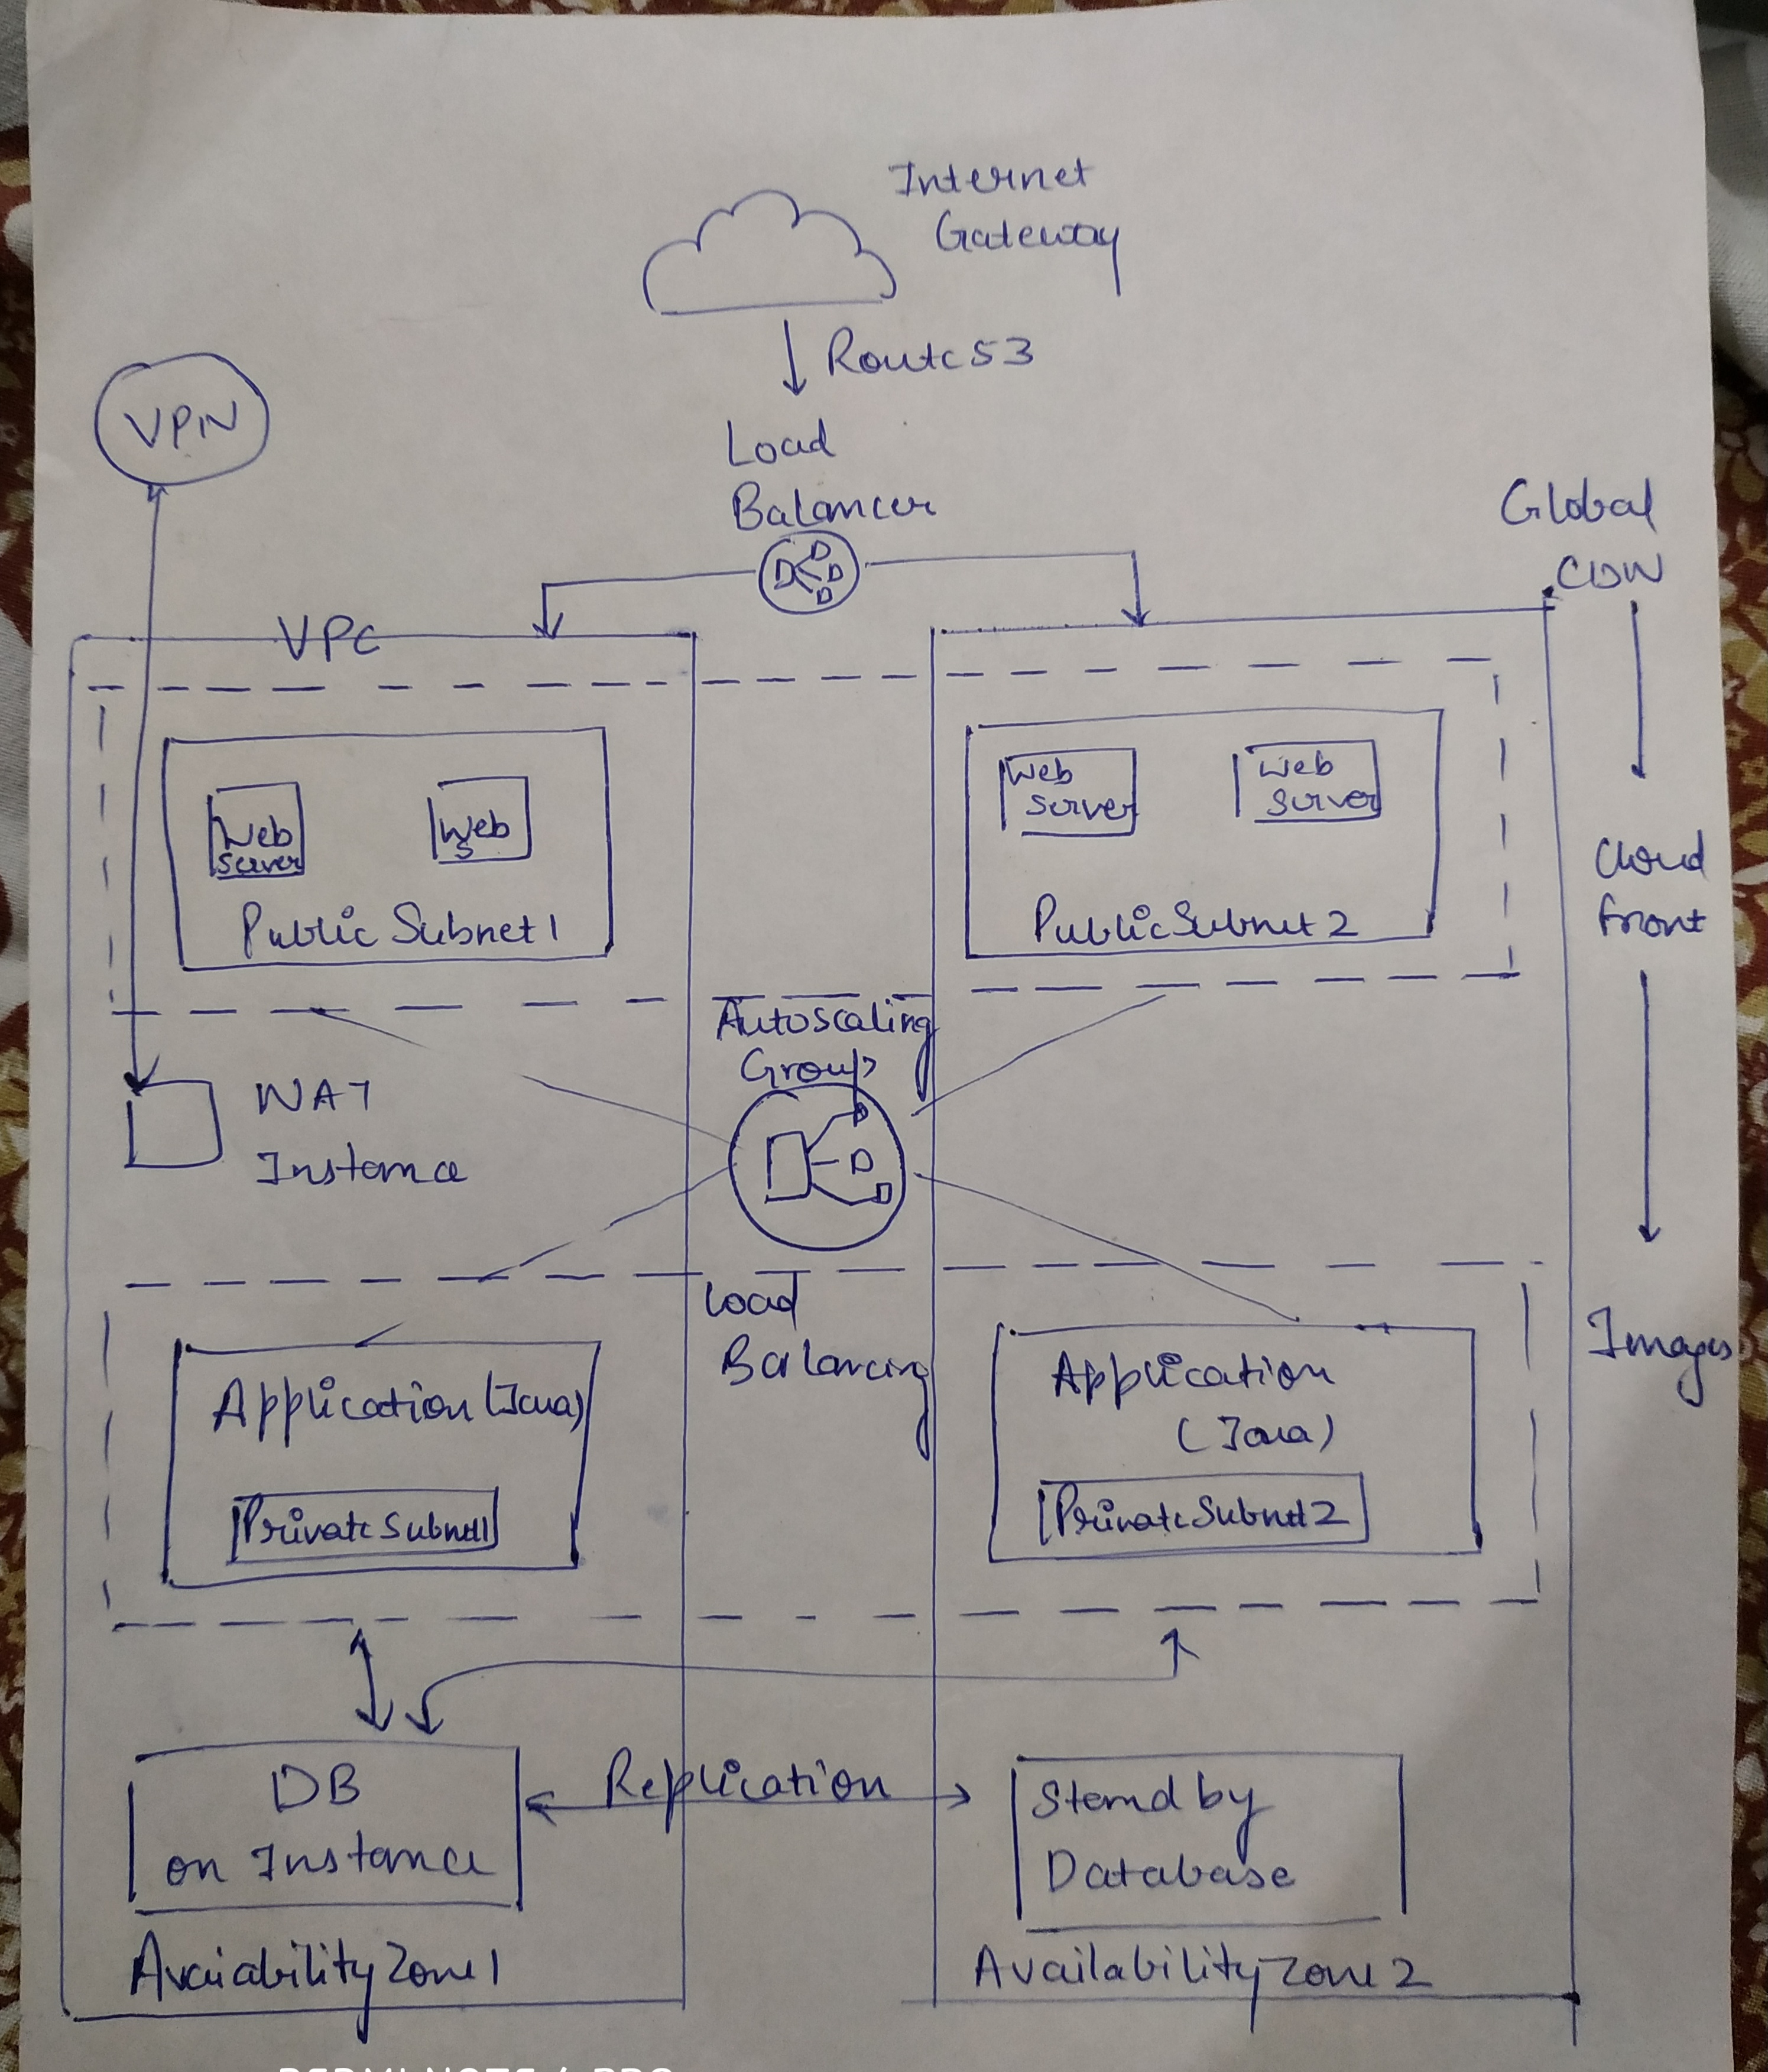 Internet
Gateway
Route53
VPN
Load
Balancer
Global
CDN
VPC
Web
Server
Web
S
Public Subnet 1
Web
Server
Web
Server
Public Subnet 2
Cloud
Front
Autoscaling
Group
NAT
Instance
Load
Balancing
Images
Application (Java)
Private Subnet1
Application
(Java)
Private Subnet 2
DB
on Instance
Replication
Stand by
Database
Avaiability Zone 1
Availability Zone 2